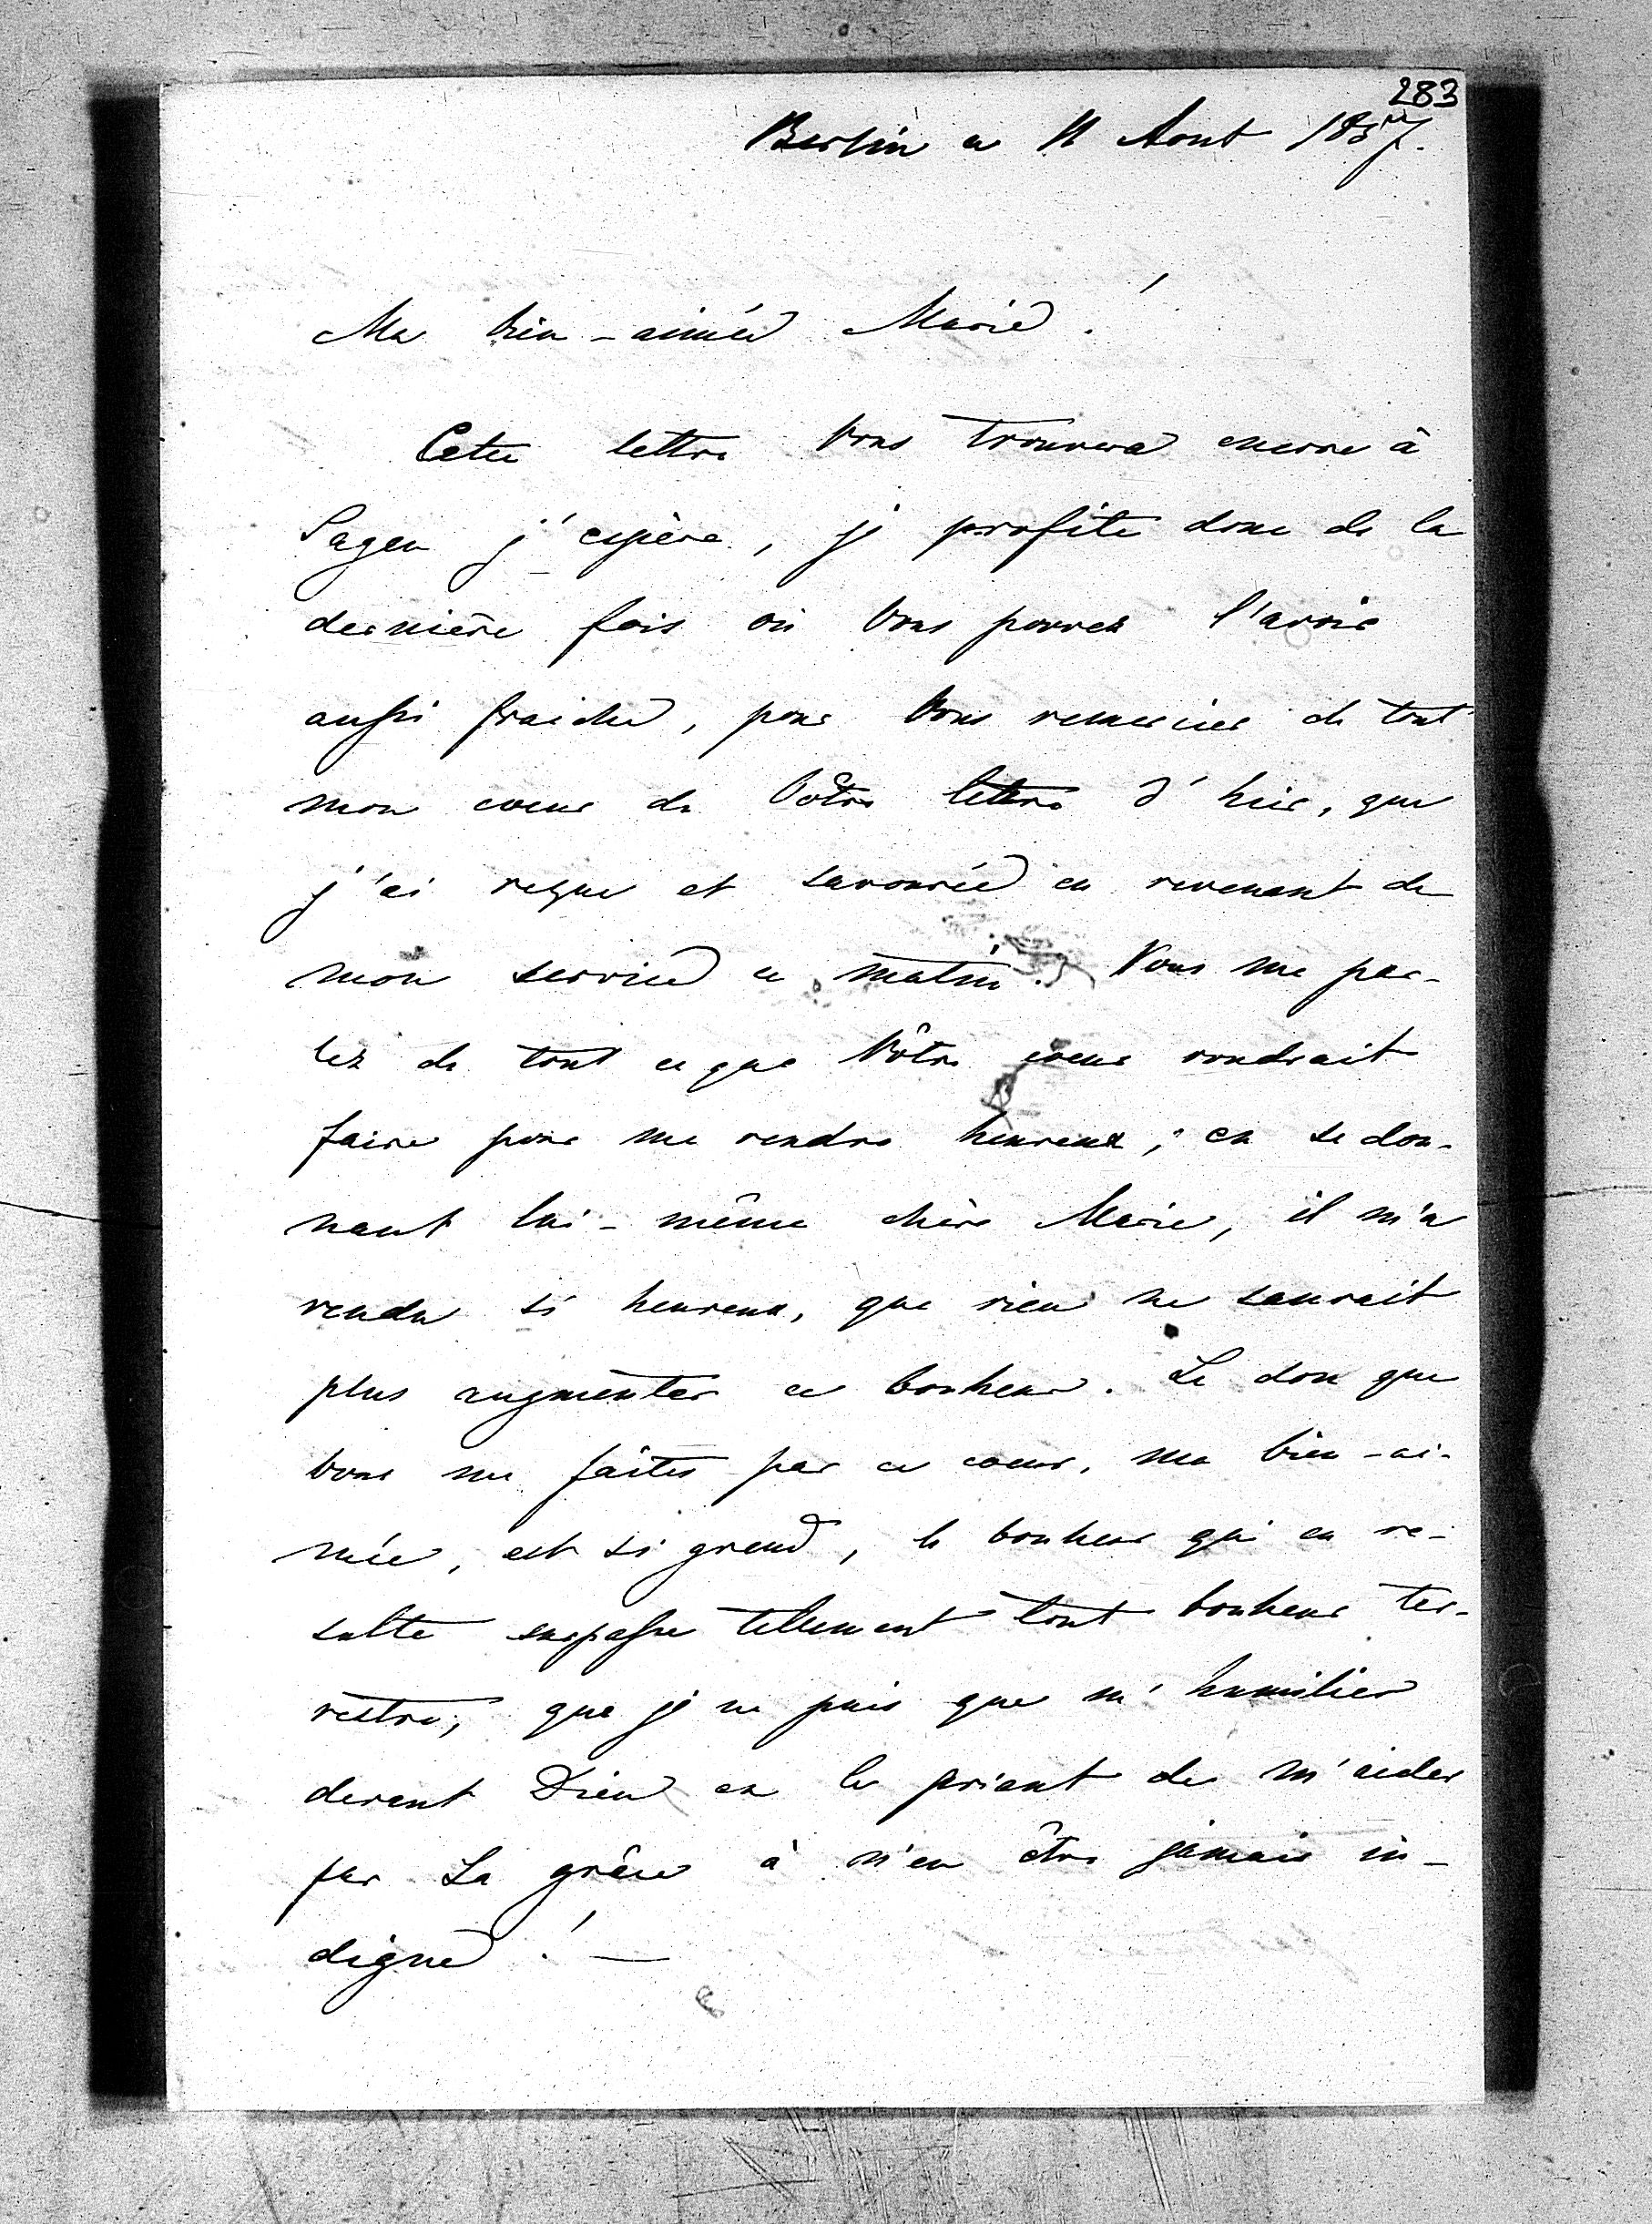 283
Berlin ce 11 Aout 1857.
Ma bien-aimée Marie!
Cette lettre Vous trouvera encore à
Sagan j'espère, je profite donc de la
dernière fois où Vous pouvez l'avoir
aussi fraiche, pour Vous remercier de tout
mon coeur de Vôtre lettre d'hier, que
j'ai reçue et savourée en revenant de
mon service ce matin. Vous me par-
lez de tout ce que Vôtre coeur voudrait
faire pour me rendre heureux; en se don-
nant lui-même chère Marie, il m'a
rendu si heureux, que rien ne saurait
plus augmenter ce bonheur. Le don que
Vous me faites par ce coeur, ma bien-ai-
mée, est si grand, le bonheur qui en re-
sulte surpasse tellement tout bonheur ter-
restre, que je ne puis que m'humilier
devant Dieu en le priant de m'aider
par Sa grâce à n'en être jamais in-
digne! —